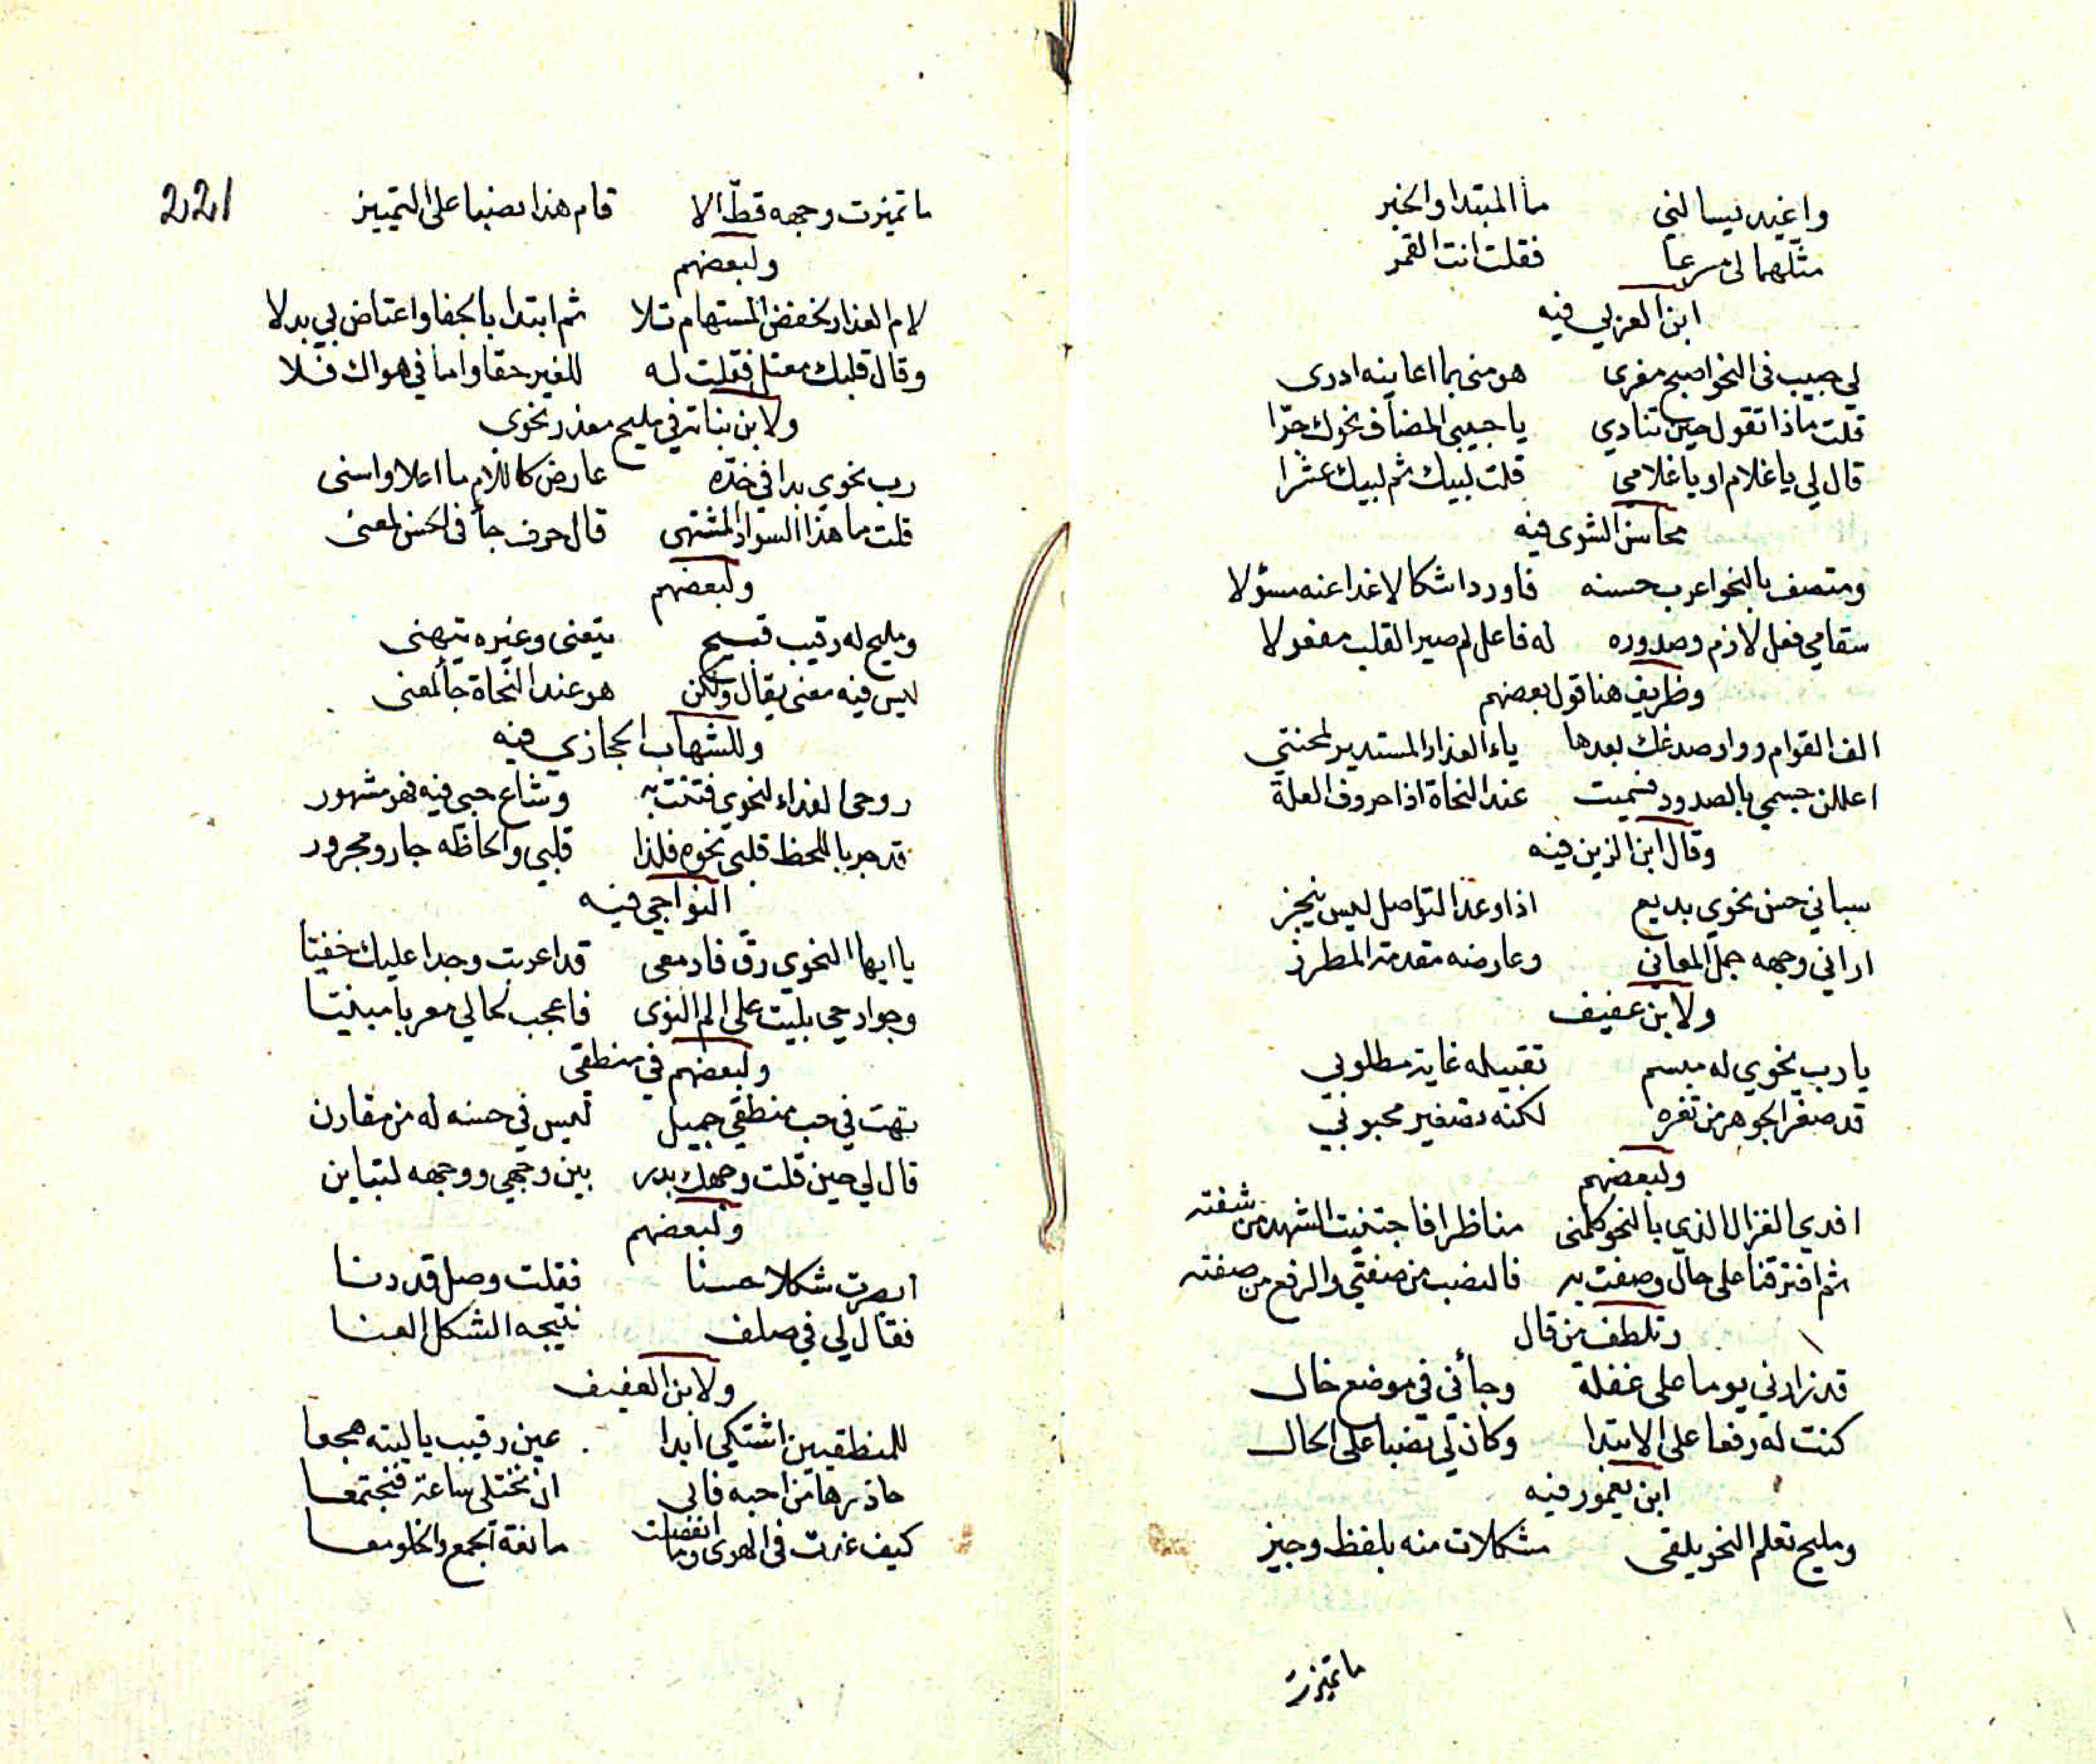 واغيد يسالني ما المبتدا والخبر
مثلهما لي مسرعا فقلت انت القمر
ابن العربي فيه
لي حبيب في النحو اصبح مغرى هو مني بما اعاينه ادرى
قلت ماذا تقول حين تنادي يا حبيبي المضاف نحوك جرا
قال لي يا غلام او يا غلامي قلت لبيك ثم لبيك عشرا
محاسن الشوى فيه
ومتصف بالنحو اعرب حسنه فاورد اشكالا غدا عنه مسؤلا
سقامي فعل لازم وصدوره له فاعل لم صير القلب مفعولا
وظريف هنا قول بعضهم
الف القوام وواو صدغك بعدها ياء العذار المستدير لمحنتي
اعللن جسمي بالصدود فسميت عند النحاة اذا حروف العلة
وقال ابن الزين فيه
سباني حسن نحوي بديع اذا وعد التواصل ليس ينجز
اراني وجهه جمل المعاني وعارضه مقدمة المطرز
ولابن عفيف
يا رب نحوي له مبسم تقبيله غاية مطلوبي
قد صغر الجوهر من ثغره لكنه تصغير محبوبي
ولبعضهم
افدي الغزال الذي بالنحو كلمني مناظرا فاجتنيت الشهد من شفته
ثم افترقنا على حال وصفت به فالنصب من صفتي والرفع من صفته
وتلطف من قال
قد زارني يوما على غفلة وجأني في موضع خال
كنت له رفعا على الابتدا وكان لي نصبا على الحال
ابن يغمور فيه
ومليح تعلم النحو يلقى مشكلات منه بلفظ وجيز
ما تميزت
221
ما تميزت وجهه قط الا قام هذا نصبا على التمييز
ولبعضهم
لام العذار بخفض المستهام تلا ثم ابتدا بالجفا واعتاض بي بدلا
وقال قلبك معتل فقلت له للغير حقا واما في هواك فلا
ولابن نباتة في مليح معذر نحوي
رب نحوي بدا في خده عارض كاللام ما اعلا واسنى
قلت ما هذا السواد المشتهى قال حرف جأ في الحسن لمعنى
ولبعضهم
ومليح له رقيب قبيح يتعنى وغيره يتهنى
ليس فيه معنى يقال ولكن هو عند النحاة جأ لمعنى
وللشهاب الحجازي فيه
روحي الفداء لنحوي فتنت به وشاع حبي فيه فهو مشهور
قد جر باللحظ قلبي نحوه فلذا قلبي والحاظه جار ومجرور
النواجي فيه
يا ايها النحوي رق فادمعي قد اعربت وجدا عليك خفيتا
وجوارحي بليت على الم النوى فاعجب لحالي معربا مبنيتا
ولبعضهم في منطقي
تهت في حب منطقي جميل ليس في حسنه له من مقارن
قال لي حين قلت وجهك بدر بين وجهي ووجهه لتباين
ولبعضهم
ابصرت شكلا حسنا فقلت وصل قد دنا
فقال لي في صلف نتيجه الشكل العنا
ولابن العفيف
للمنطقيين اشتكي ابدا عين رقيب يا ليته هجعا
حاذرها من احبه فابى ان نختلي ساعة فنجتمعا
كيف غدت في الهوى وما انفصلت مانعة الجمع والخلو معا